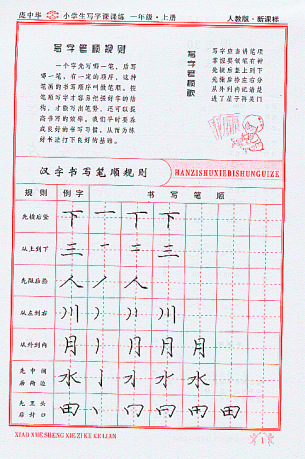 庞中华 小学生写字课课练 一年级·上册 人教版·新课标
写字笔顺规则
一个字先写哪一笔，后写
哪一笔，有一定的顺序，这种
笔画的书写顺序叫做笔顺。按
笔顺写字才容易把握好字的结
构，才能写出笔势，还可以提
高书写的效率。我们平时要养
成良好的书写习惯，从而为练
好书法打下良好的基础。
写字笔顺歌
写字应当讲笔顺
掌握要领笔有神
先横后竖上到下
先撇后捺左右分
从外到内记清楚
进了屋子再关门
汉字书写笔顺规则 HANZISHUXIEBISHUNGUIZE
规则 例字 书写笔顺
先横后竖 下 一 丅 下
从上到下 三 一 二 三
先撇后捺 人 丿 人
从左到右 川 丿 川
从外到内 月 丿 月 月 月
先中间后两边 水 亅 水 水 水
先里头后封口 田 丨 田 田 田 田
XIAO XUE SHENG XIE ZI KE KE LIAN
1